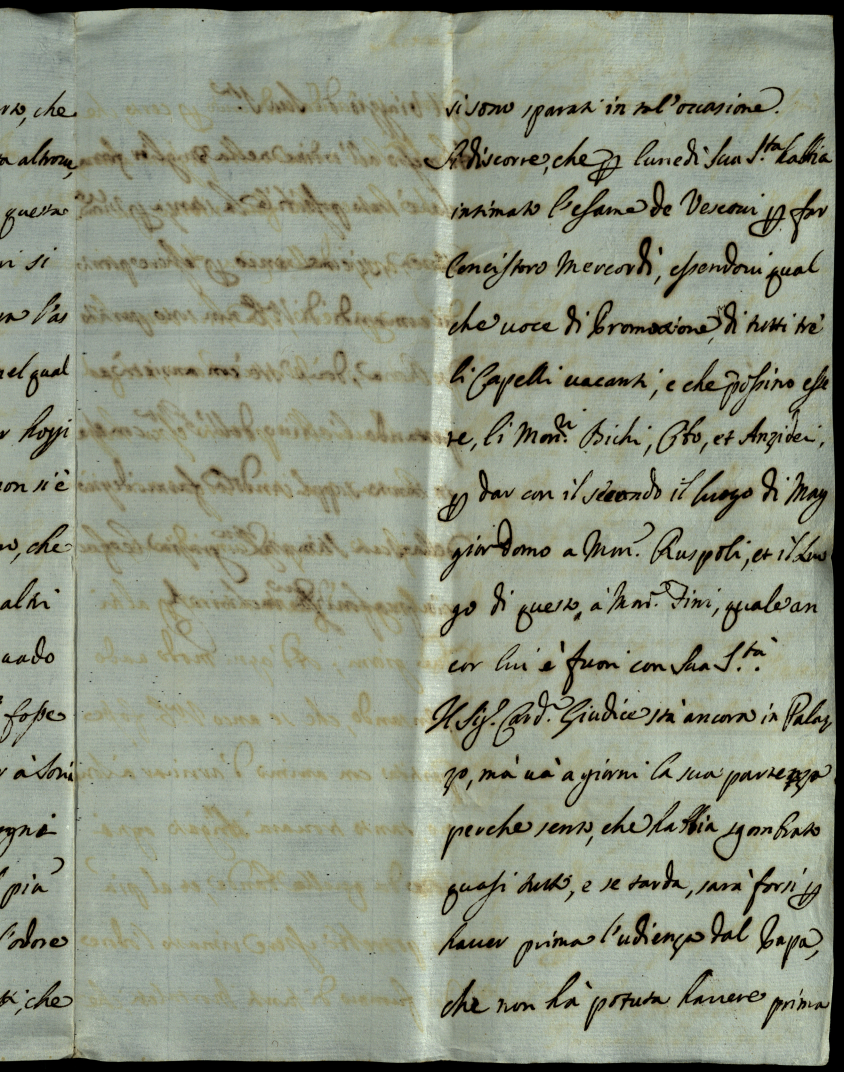 rto, che
ra altroue,
questa
ri si
ra l'as
nel qual
r hoggi
non s'è
ro, che
altri
uado
fosse
r à Soria
ogni
più
l'odore
ti, che
si sono sparati in tal'occasione.
Si discorre, che p lunedi Sua S.tà habbia
intimato l'esame de Vescoui p far
Concistoro Mercordì, essendoui qual
che uoce di Promozione, di tutti trè
li Capelli uacanti, e che possino esse
re, li Mon.ri Bichi, Cibo, et Anzidei,
p dar con il secondo il luogo di Mag
giordomo a Mon.r Ruspoli, et il Luo
go di questo, à Mon.r Fini, quale an
cor lui è fuori con Sua S.tà
Il Sig.r Card.l Giudice stà ancora in Palaz
zo, mà uà a giorni la sua partenza
perche sento, che habbia sgombrato
quasi tutto, e se tarda, sarà forsi p
hauer prima l'udienza dal Papa,
che non hà potuta hauere prima